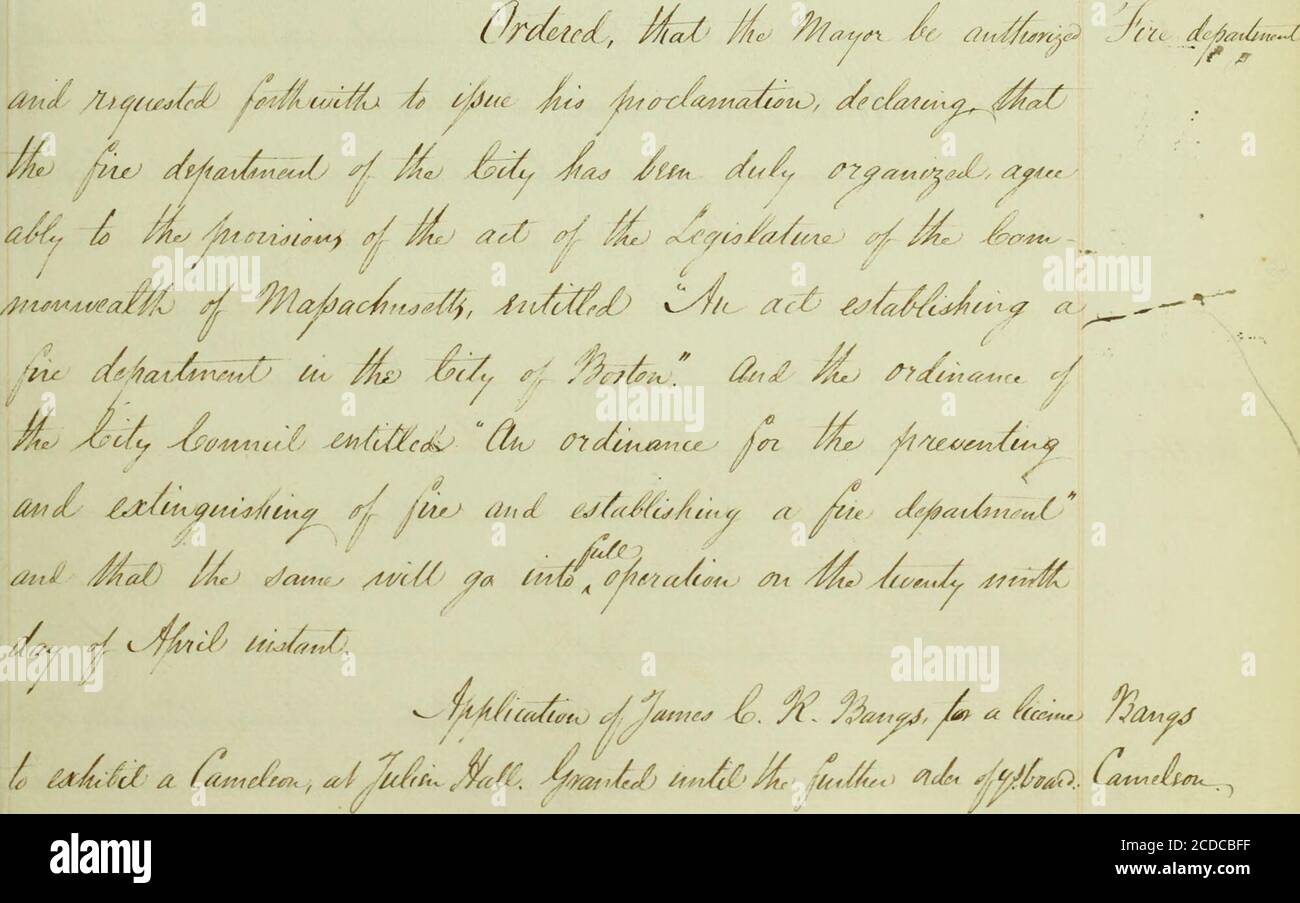 Ordered, that the Mayor be authorized Fire department
and requested forthwith to issue his proclamation, declaring, that
the fire department of the City has been duly organized, agree
ably to the provisions of the act of the Legislature of the Com-
monwealth of Massachusetts, entitled "An act establishing a
fire department in the City of Boston." And the ordinance of
the City Council entitled "An ordinance for the preventing
and extinguishing of fire and establishing a fire department"
and that the same will go into ^full operation on the twenty ninth
day of April instant.
Application of James C. R. Bangs, for a license Bangs
to exhibit a Cameleon, at Julien Hall. Granted until the further order of ye. board. Cameleon.
alamy
a
alamy
Image ID: 2CDCBFF
www.alamy.com